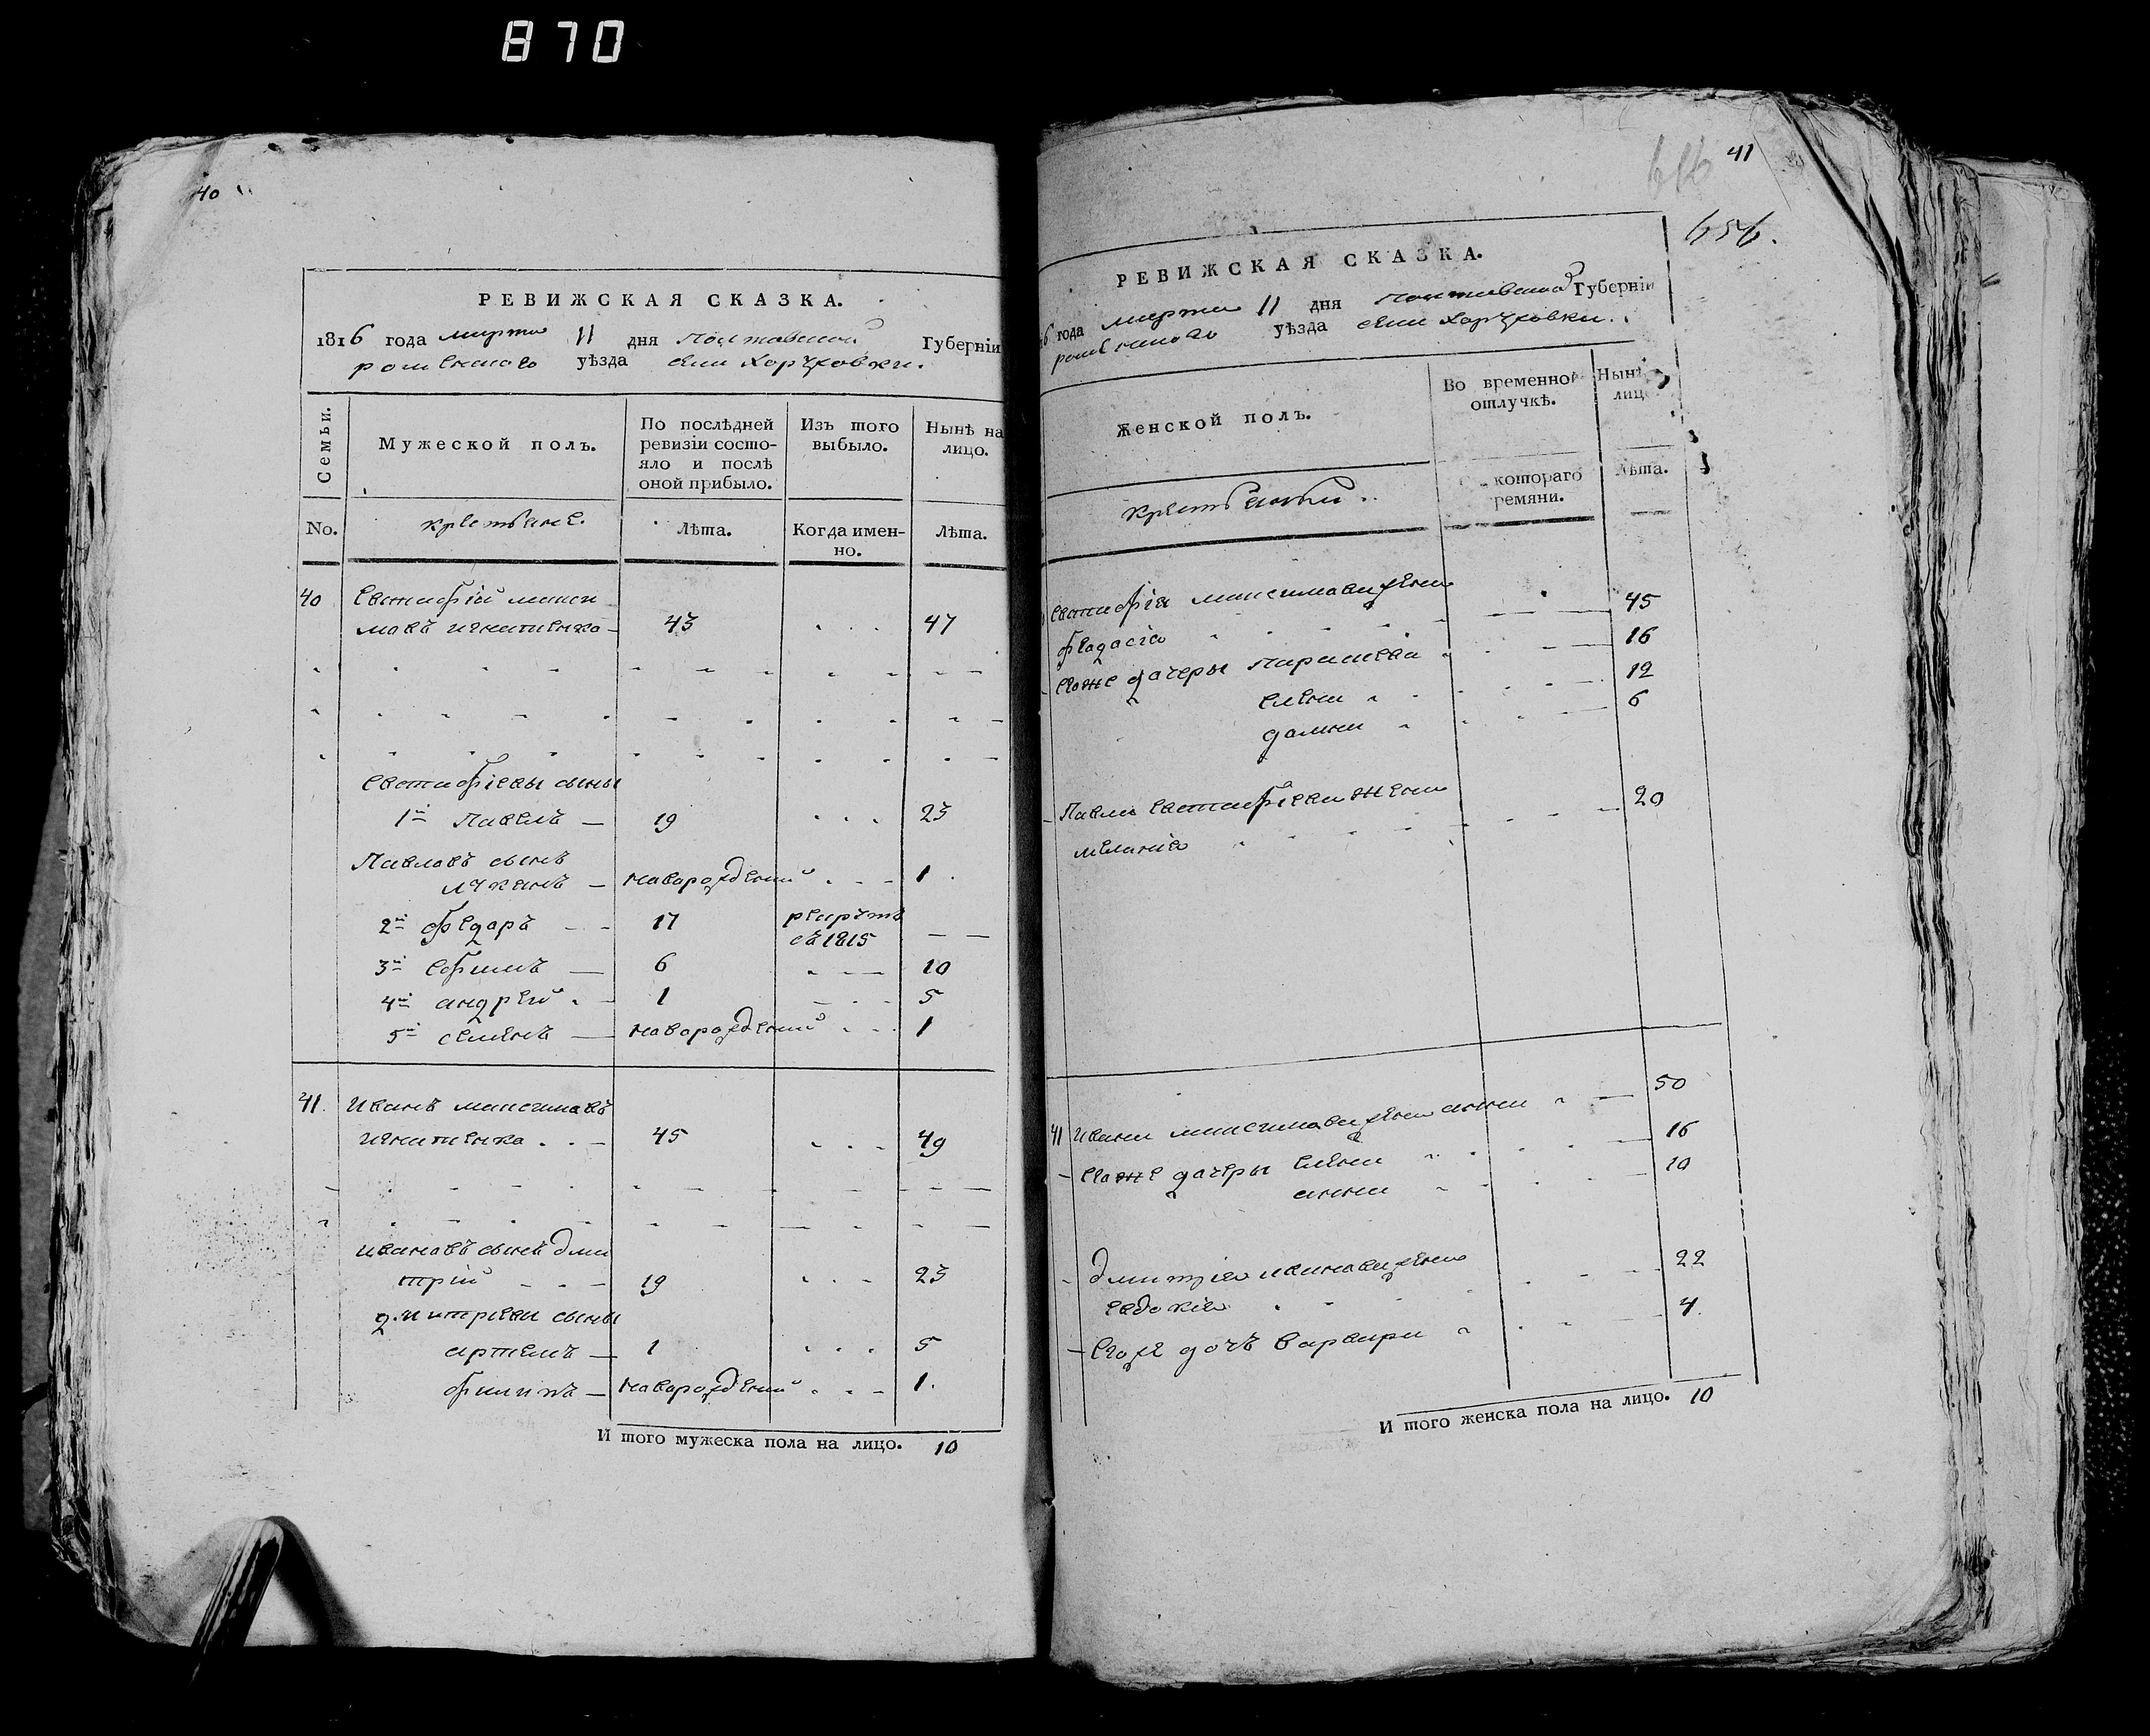 870
40
РЕВИЖСКАЯ СКАЗКА.
1816 года марта 11 дня Полтавской Губерніи
роменского уѣзда села Харуховки.
Семьи.
Мужеской полъ.
По послѣдней ревизіи состо-яло и послѣ оной прибыло.
Изъ того выбыло.
Нынѣ на лицо.
No.
крестьяне.
Лѣта.
Когда имен-но.
Лѣта.
40 Евстафій макси
мовъ игнатенко 43 47
Евстафіевы сыны
1й Павелъ 19 23
Павловъ сынъ
лукянъ новорожденый 1
2й федоръ 17 рекрутъ
съ 1815
3й Ефимъ 6 10
4й андрей 1 5
5й семенъ новорожденый 1
41. Иванъ максимовъ
игнатенко 45 49
ивановъ сынъ дми
трій 19 23
дмитріевы сыны
артемъ 1 5
филипъ новорожденый 1.
И того мужеска пола на лицо. 10
41
656.
РЕВИЖСКАЯ СКАЗКА.
16 года марта 11 дня Полтавской Губерніи
роменского уѣзда села Харуховки.
Женской полъ.
Во временной отлучкѣ.
Нынѣ лицо
крестьянки.
котораго ремяни.
Лѣта.
Евстафія максимова жена
федосія 45
Егоже дочеры параскева 16
елена 12
домна 6
Павла Евстафіева жена
меланія 20
41 Ивана максимова жена анна 50
Егоже дочеры елена 16
анна 10
дмитрія иванова жена
евдокія 22
Егоже дочъ варвара 4.
И того женска пола на лицо. 10